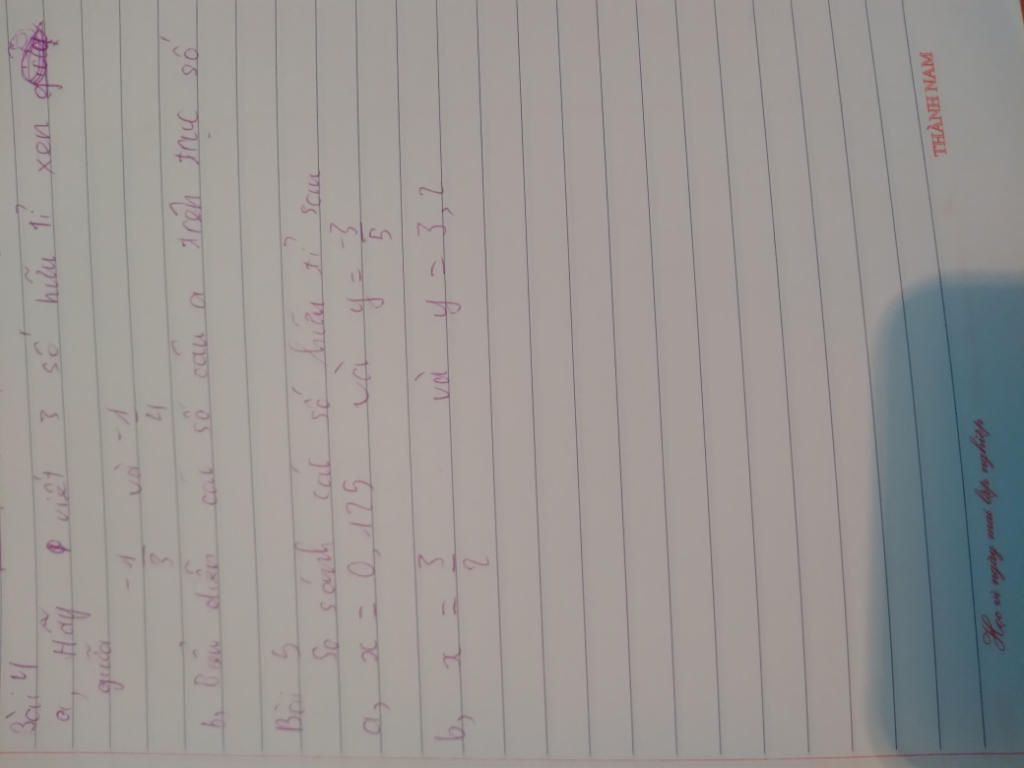 Bài 4
a, Hãy viết 3 số hữu tỉ xen
giữa -1/3 và -1/4
b, Biểu diễn các số câu a trên trục số
Bài 5
So sánh các số hữu tỉ sau
a, x = 0,125 và y = -3/5
b, x = 3/2 và y = 3,2
THÀNH NAM
Học vì ngày mai lập nghiệp